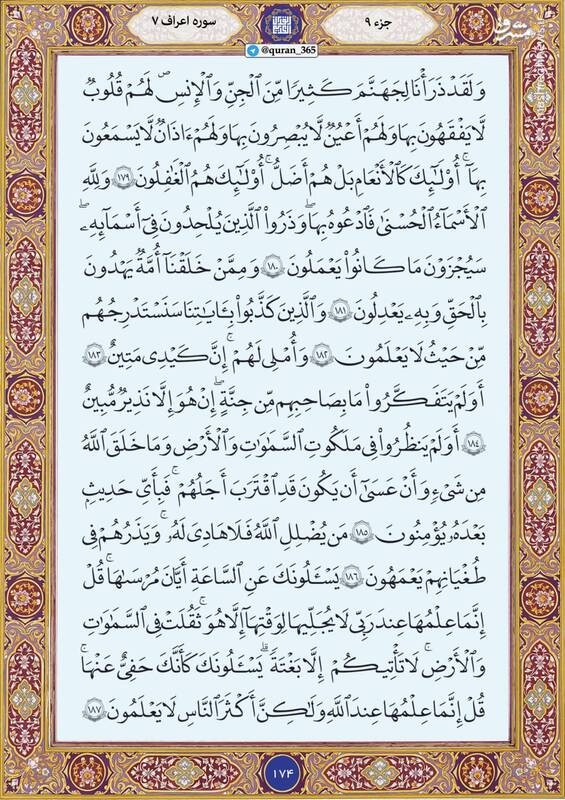 جزء ۹
سوره اعراف ۷
@quran_365
وَلَقَدْ ذَرَأْنَا لِجَهَنَّمَ كَثِيرًا مِّنَ ٱلْجِنِّ وَٱلْإِنسِ ۖ لَهُمْ قُلُوبٌ
لَّا يَفْقَهُونَ بِهَا وَلَهُمْ أَعْيُنٌ لَّا يُبْصِرُونَ بِهَا وَلَهُمْ ءَاذَانٌ لَّا يَسْمَعُونَ
بِهَآ ۚ أُو۟لَـٰٓئِكَ كَٱلْأَنْعَـٰمِ بَلْ هُمْ أَضَلُّ ۚ أُو۟لَـٰٓئِكَ هُمُ ٱلْغَـٰفِلُونَ ١٧٩ وَلِلَّهِ
ٱلْأَسْمَآءُ ٱلْحُسْنَىٰ فَٱدْعُوهُ بِهَا ۖ وَذَرُوا۟ ٱلَّذِينَ يُلْحِدُونَ فِىٓ أَسْمَـٰٓئِهِۦ ۚ
سَيُجْزَوْنَ مَا كَانُوا۟ يَعْمَلُونَ ١٨٠ وَمِمَّنْ خَلَقْنَآ أُمَّةٌ يَهْدُونَ
بِٱلْحَقِّ وَبِهِۦ يَعْدِلُونَ ١٨١ وَٱلَّذِينَ كَذَّبُوا۟ بِـَٔايَـٰتِنَا سَنَسْتَدْرِجُهُم
مِّنْ حَيْثُ لَا يَعْلَمُونَ ١٨٢ وَأُمْلِى لَهُمْ ۚ إِنَّ كَيْدِى مَتِينٌ ١٨٣
أَوَلَمْ يَتَفَكَّرُوا۟ ۗ مَا بِصَاحِبِهِم مِّن جِنَّةٍ ۚ إِنْ هُوَ إِلَّا نَذِيرٌ مُّبِينٌ
١٨٤ أَوَلَمْ يَنظُرُوا۟ فِى مَلَكُوتِ ٱلسَّمَـٰوَٰتِ وَٱلْأَرْضِ وَمَا خَلَقَ ٱللَّهُ
مِن شَىْءٍ وَأَنْ عَسَىٰٓ أَن يَكُونَ قَدِ ٱقْتَرَبَ أَجَلُهُمْ ۖ فَبِأَىِّ حَدِيثٍۭ
بَعْدَهُۥ يُؤْمِنُونَ ١٨٥ مَن يُضْلِلِ ٱللَّهُ فَلَا هَادِىَ لَهُۥ ۚ وَيَذَرُهُمْ فِى
طُغْيَـٰنِهِمْ يَعْمَهُونَ ١٨٦ يَسْـَٔلُونَكَ عَنِ ٱلسَّاعَةِ أَيَّانَ مُرْسَىٰهَا ۖ قُلْ
إِنَّمَا عِلْمُهَا عِندَ رَبِّى ۖ لَا يُجَلِّيهَا لِوَقْتِهَآ إِلَّا هُوَ ۚ ثَقُلَتْ فِى ٱلسَّمَـٰوَٰتِ
وَٱلْأَرْضِ ۚ لَا تَأْتِيكُمْ إِلَّا بَغْتَةً ۗ يَسْـَٔلُونَكَ كَأَنَّكَ حَفِىٌّ عَنْهَا ۖ
قُلْ إِنَّمَا عِلْمُهَا عِندَ ٱللَّهِ وَلَـٰكِنَّ أَكْثَرَ ٱلنَّاسِ لَا يَعْلَمُونَ ١٨٧
۱۷۴